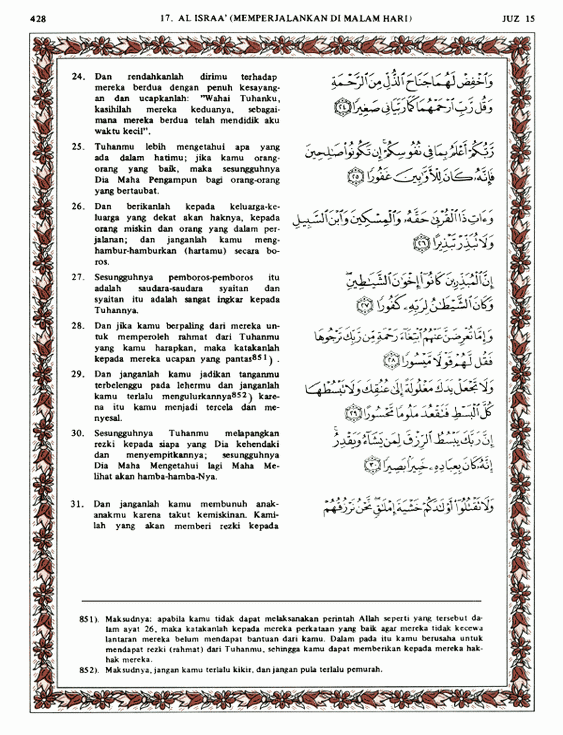 428 17. AL ISRAA' (MEMPERJALANKAN DI MALAM HARI) JUZ 15
24. Dan rendahkanlah dirimu terhadap
mereka berdua dengan penuh kesayang-
an dan ucapkanlah: "Wahai Tuhanku,
kasihilah mereka keduanya, sebagai-
mana mereka berdua telah mendidik aku
waktu kecil".
وَاخْفِضْ لَهُمَا جَنَاحَ الذُّلِّ مِنَ الرَّحْمَةِ
وَقُل رَّبِّ ارْحَمْهُمَا كَمَا رَبَّيَانِي صَغِيرًا ﴿٢٤﴾
25. Tuhanmu lebih mengetahui apa yang
ada dalam hatimu; jika kamu orang-
orang yang baik, maka sesungguhnya
Dia Maha Pengampun bagi orang-orang
yang bertaubat.
رَّبُّكُمْ أَعْلَمُ بِمَا فِي نُفُوسِكُمْ إِن تَكُونُوا صَالِحِينَ
فَإِنَّهُ كَانَ لِلْأَوَّابِينَ غَفُورًا ﴿٢٥﴾
26. Dan berikanlah kepada keluarga-ke-
luarga yang dekat akan haknya, kepada
orang miskin dan orang yang dalam per-
jalanan; dan janganlah kamu meng-
hambur-hamburkan (hartamu) secara bo-
ros.
وَءَاتِ ذَا الْقُرْبَىٰ حَقَّهُ وَالْمِسْكِينَ وَابْنَ السَّبِيلِ
وَلَا تُبَذِّرْ تَبْذِيرًا ﴿٢٦﴾
27. Sesungguhnya pemboros-pemboros itu
adalah saudara-saudara syaitan dan
syaitan itu adalah sangat ingkar kepada
Tuhannya.
إِنَّ الْمُبَذِّرِينَ كَانُوا إِخْوَانَ الشَّيَاطِينِ
وَكَانَ الشَّيْطَانُ لِرَبِّهِ كَفُورًا ﴿٢٧﴾
28. Dan jika kamu berpaling dari mereka un-
tuk memperoleh rahmat dari Tuhanmu
yang kamu harapkan, maka katakanlah
kepada mereka ucapan yang pantas851) .
وَإِمَّا تُعْرِضَنَّ عَنْهُمُ ابْتِغَاءَ رَحْمَةٍ مِّن رَّبِّكَ تَرْجُوهَا
فَقُل لَّهُمْ قَوْلًا مَّيْسُورًا ﴿٢٨﴾
29. Dan janganlah kamu jadikan tanganmu
terbelenggu pada lehermu dan janganlah
kamu terlalu mengulurkannya852) kare-
na itu kamu menjadi tercela dan me-
nyesal.
وَلَا تَجْعَلْ يَدَكَ مَغْلُولَةً إِلَىٰ عُنُقِكَ وَلَا تَبْسُطْهَا
كُلَّ الْبَسْطِ فَتَقْعُدَ مَلُومًا مَّحْسُورًا ﴿٢٩﴾
30. Sesungguhnya Tuhanmu melapangkan
rezki kepada siapa yang Dia kehendaki
dan menyempitkannya; sesungguhnya
Dia Maha Mengetahui lagi Maha Me-
lihat akan hamba-hamba-Nya.
إِنَّ رَبَّكَ يَبْسُطُ الرِّزْقَ لِمَن يَشَاءُ وَيَقْدِرُ
إِنَّهُ كَانَ بِعِبَادِهِ خَبِيرًا بَصِيرًا ﴿٣٠﴾
31. Dan janganlah kamu membunuh anak-
anakmu karena takut kemiskinan. Kami-
lah yang akan memberi rezki kepada
وَلَا تَقْتُلُوا أَوْلَادَكُمْ خَشْيَةَ إِمْلَاقٍ نَّحْنُ نَرْزُقُهُمْ
851). Maksudnya: apabila kamu tidak dapat melaksanakan perintah Allah seperti yang tersebut da-
lam ayat 26, maka katakanlah kepada mereka perkataan yang baik agar mereka tidak kecewa
lantaran mereka belum mendapat bantuan dari kamu. Dalam pada itu kamu berusaha untuk
mendapat rezki (rahmat) dari Tuhanmu, sehingga kamu dapat memberikan kepada mereka hak-
hak mereka.
852). Maksudnya, jangan kamu terlalu kikir, dan jangan pula terlalu pemurah.